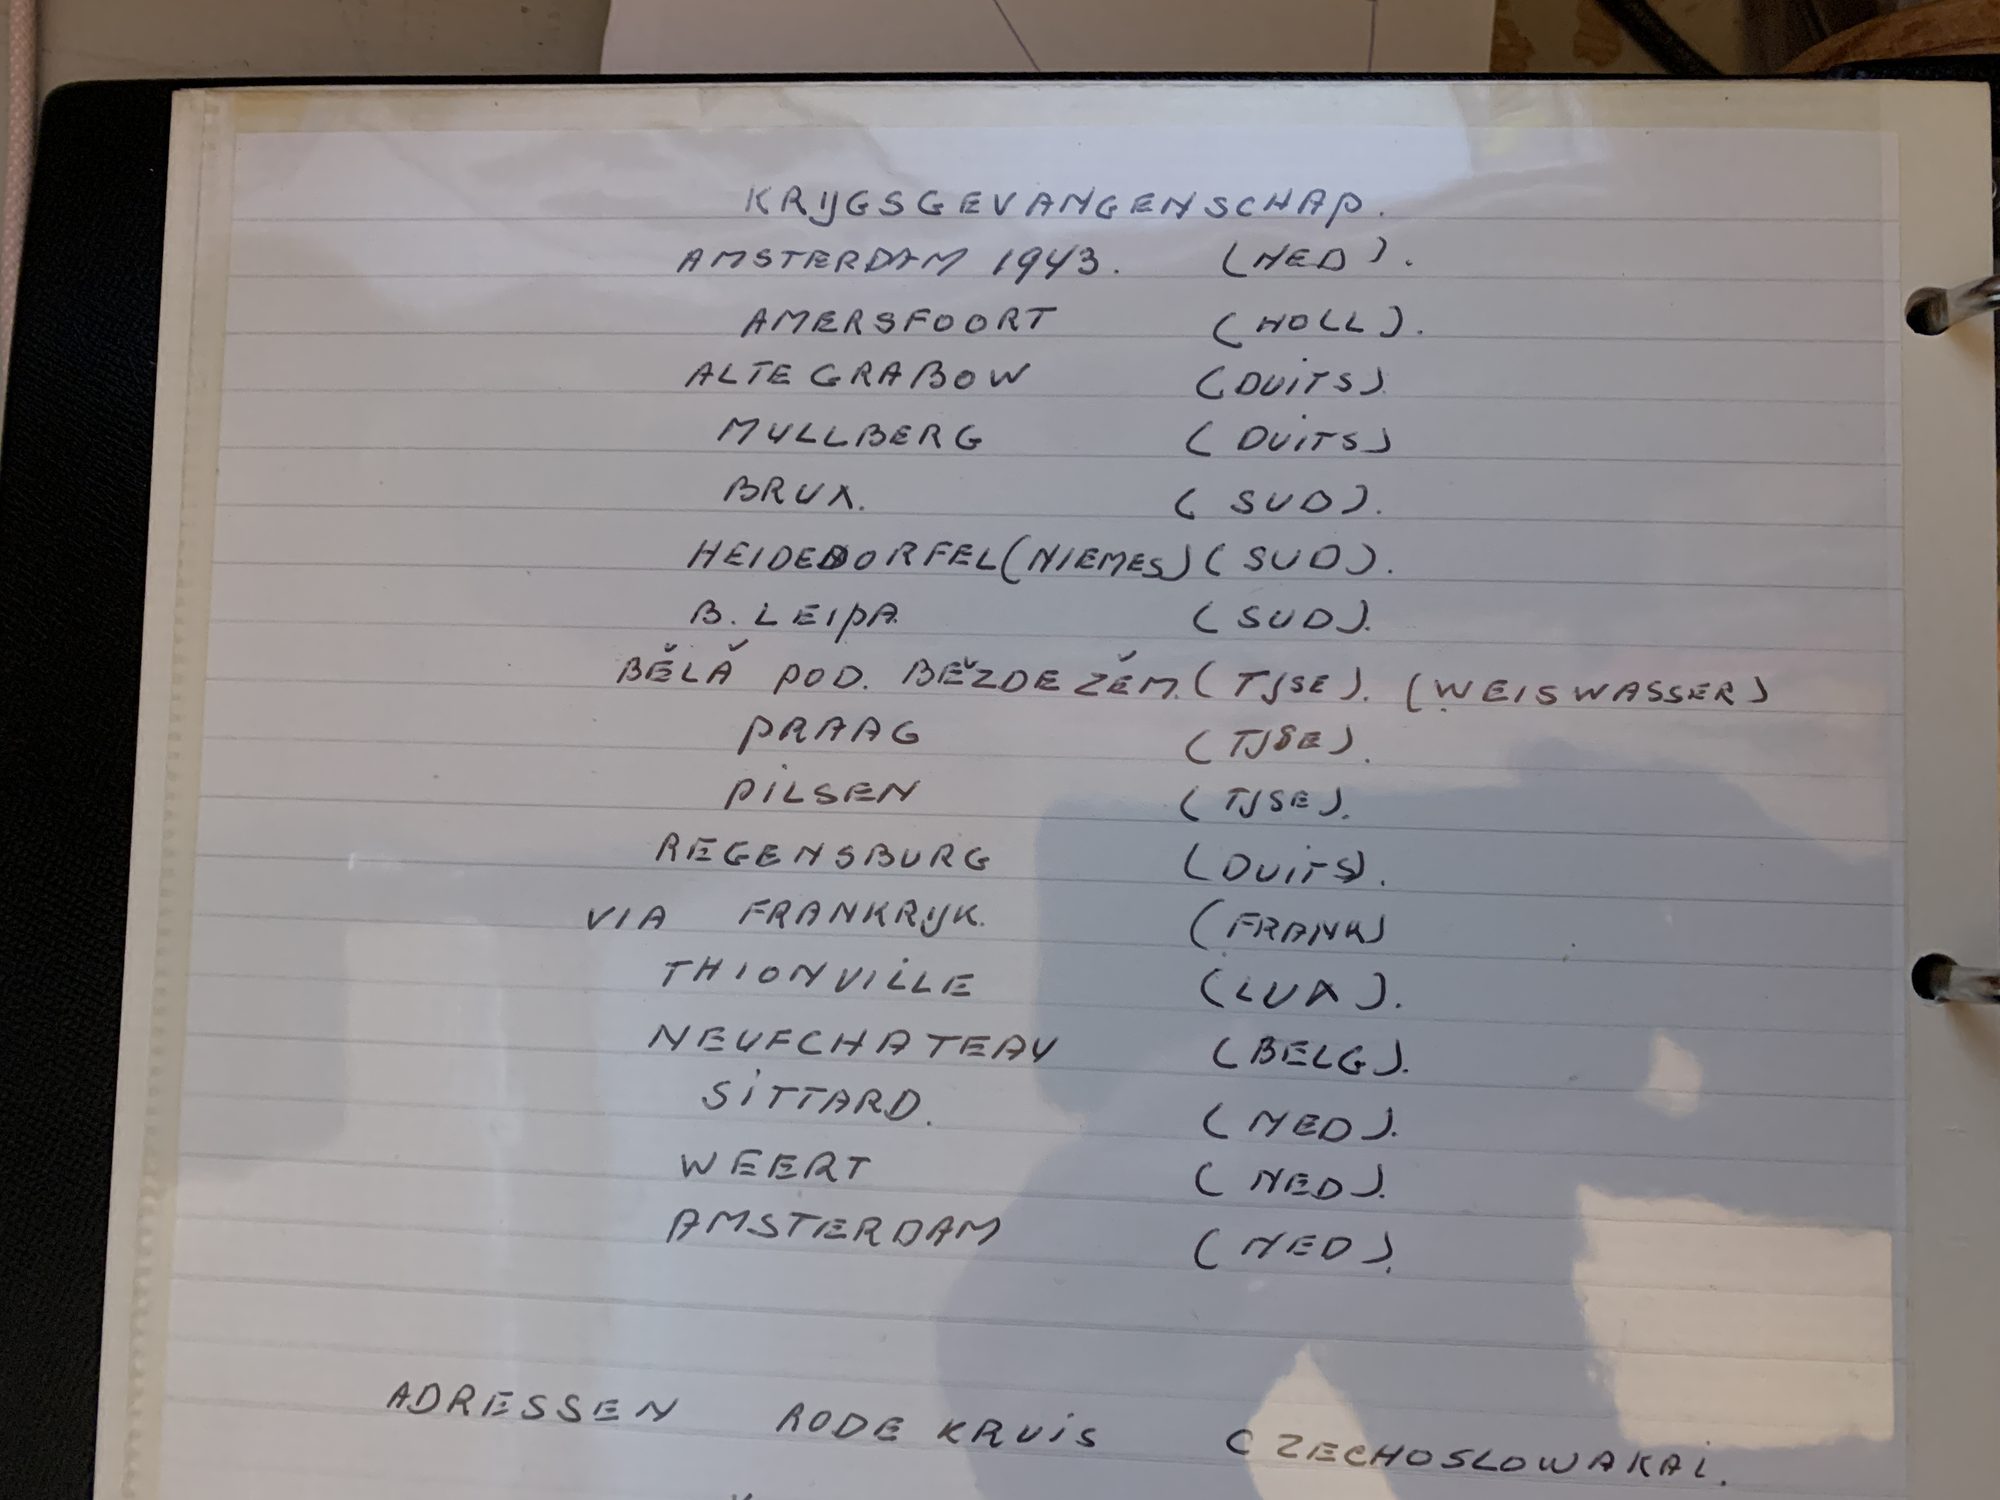 KRIJGSGEVANGENSCHAP.
AMSTERDAM 1943. (NED).
AMERSFOORT (HOLL).
ALTEGRABOW (DUITS).
MULLBERG (DUITS)
BRUX. (SUD).
HEIDEDORFEL (NIEMES) (SUD).
B. LEIPA (SUD).
BĚLǍ POD. BĚZDEZĚM. (TJSE). (WEISWASSER)
PRAAG (TJSE).
PILSEN (TJSE).
REGENSBURG (DUITS).
VIA FRANKRIJK. (FRANK)
THIONVILLE (LUX).
NEUFCHATEAU (BELG).
SITTARD. (NED).
WEERT (NED).
AMSTERDAM (NED).
ADRESSEN RODE KRUIS CZECHOSLOWAKAI.